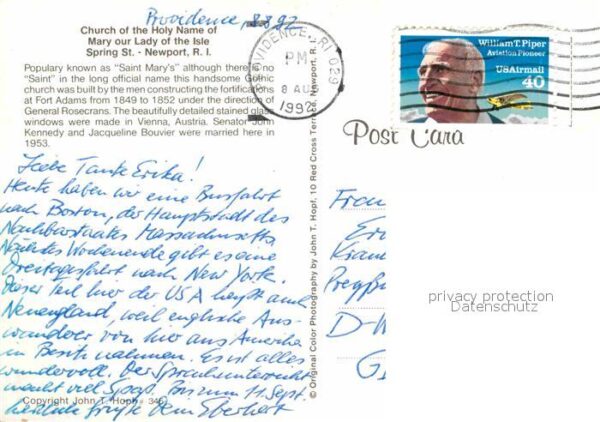 Providence, 8.8.92
Church of the Holy Name of
Mary our Lady of the Isle
Spring St. - Newport, R. I.
Populary known as "Saint Mary's" although there is no
"Saint" in the long official name this handsome Gothic
church was built by the men constructing the fortifications
at Fort Adams from 1849 to 1852 under the direction of
General Rosecrans. The beautifully detailed stained glass
windows were made in Vienna, Austria. Senator John
Kennedy and Jacqueline Bouvier were married here in
1953.
Liebe Tante Erika!
Heute haben wir eine Busfahrt
nach Boston, der Hauptstadt des
Nachbarstaates Massachusetts
Nächstes Wochenende gibt es eine
Dreitagesfahrt nach New York.
Dieser Teil hier der USA heißt auch
Neuengland, weil englische Aus-
wanderer von hier aus Amerika
in Besitz nahmen. Es ist alles
wundervoll. Der Sprachunterricht
macht viel Spaß. Bis zum 11. Sept.
herzlich grüßt Dein Eberhart
Copyright John T. Hopf - 346
© Original Color Photography by John T. Hopf, 10 Red Cross Terrace, Newport, R.
PROVIDENCE, RI 029
PM
8 AU
1992
William T. Piper
Aviation Pioneer
USAirmail
40
Post Card
Frau
D-W
privacy protection
Datenschutz